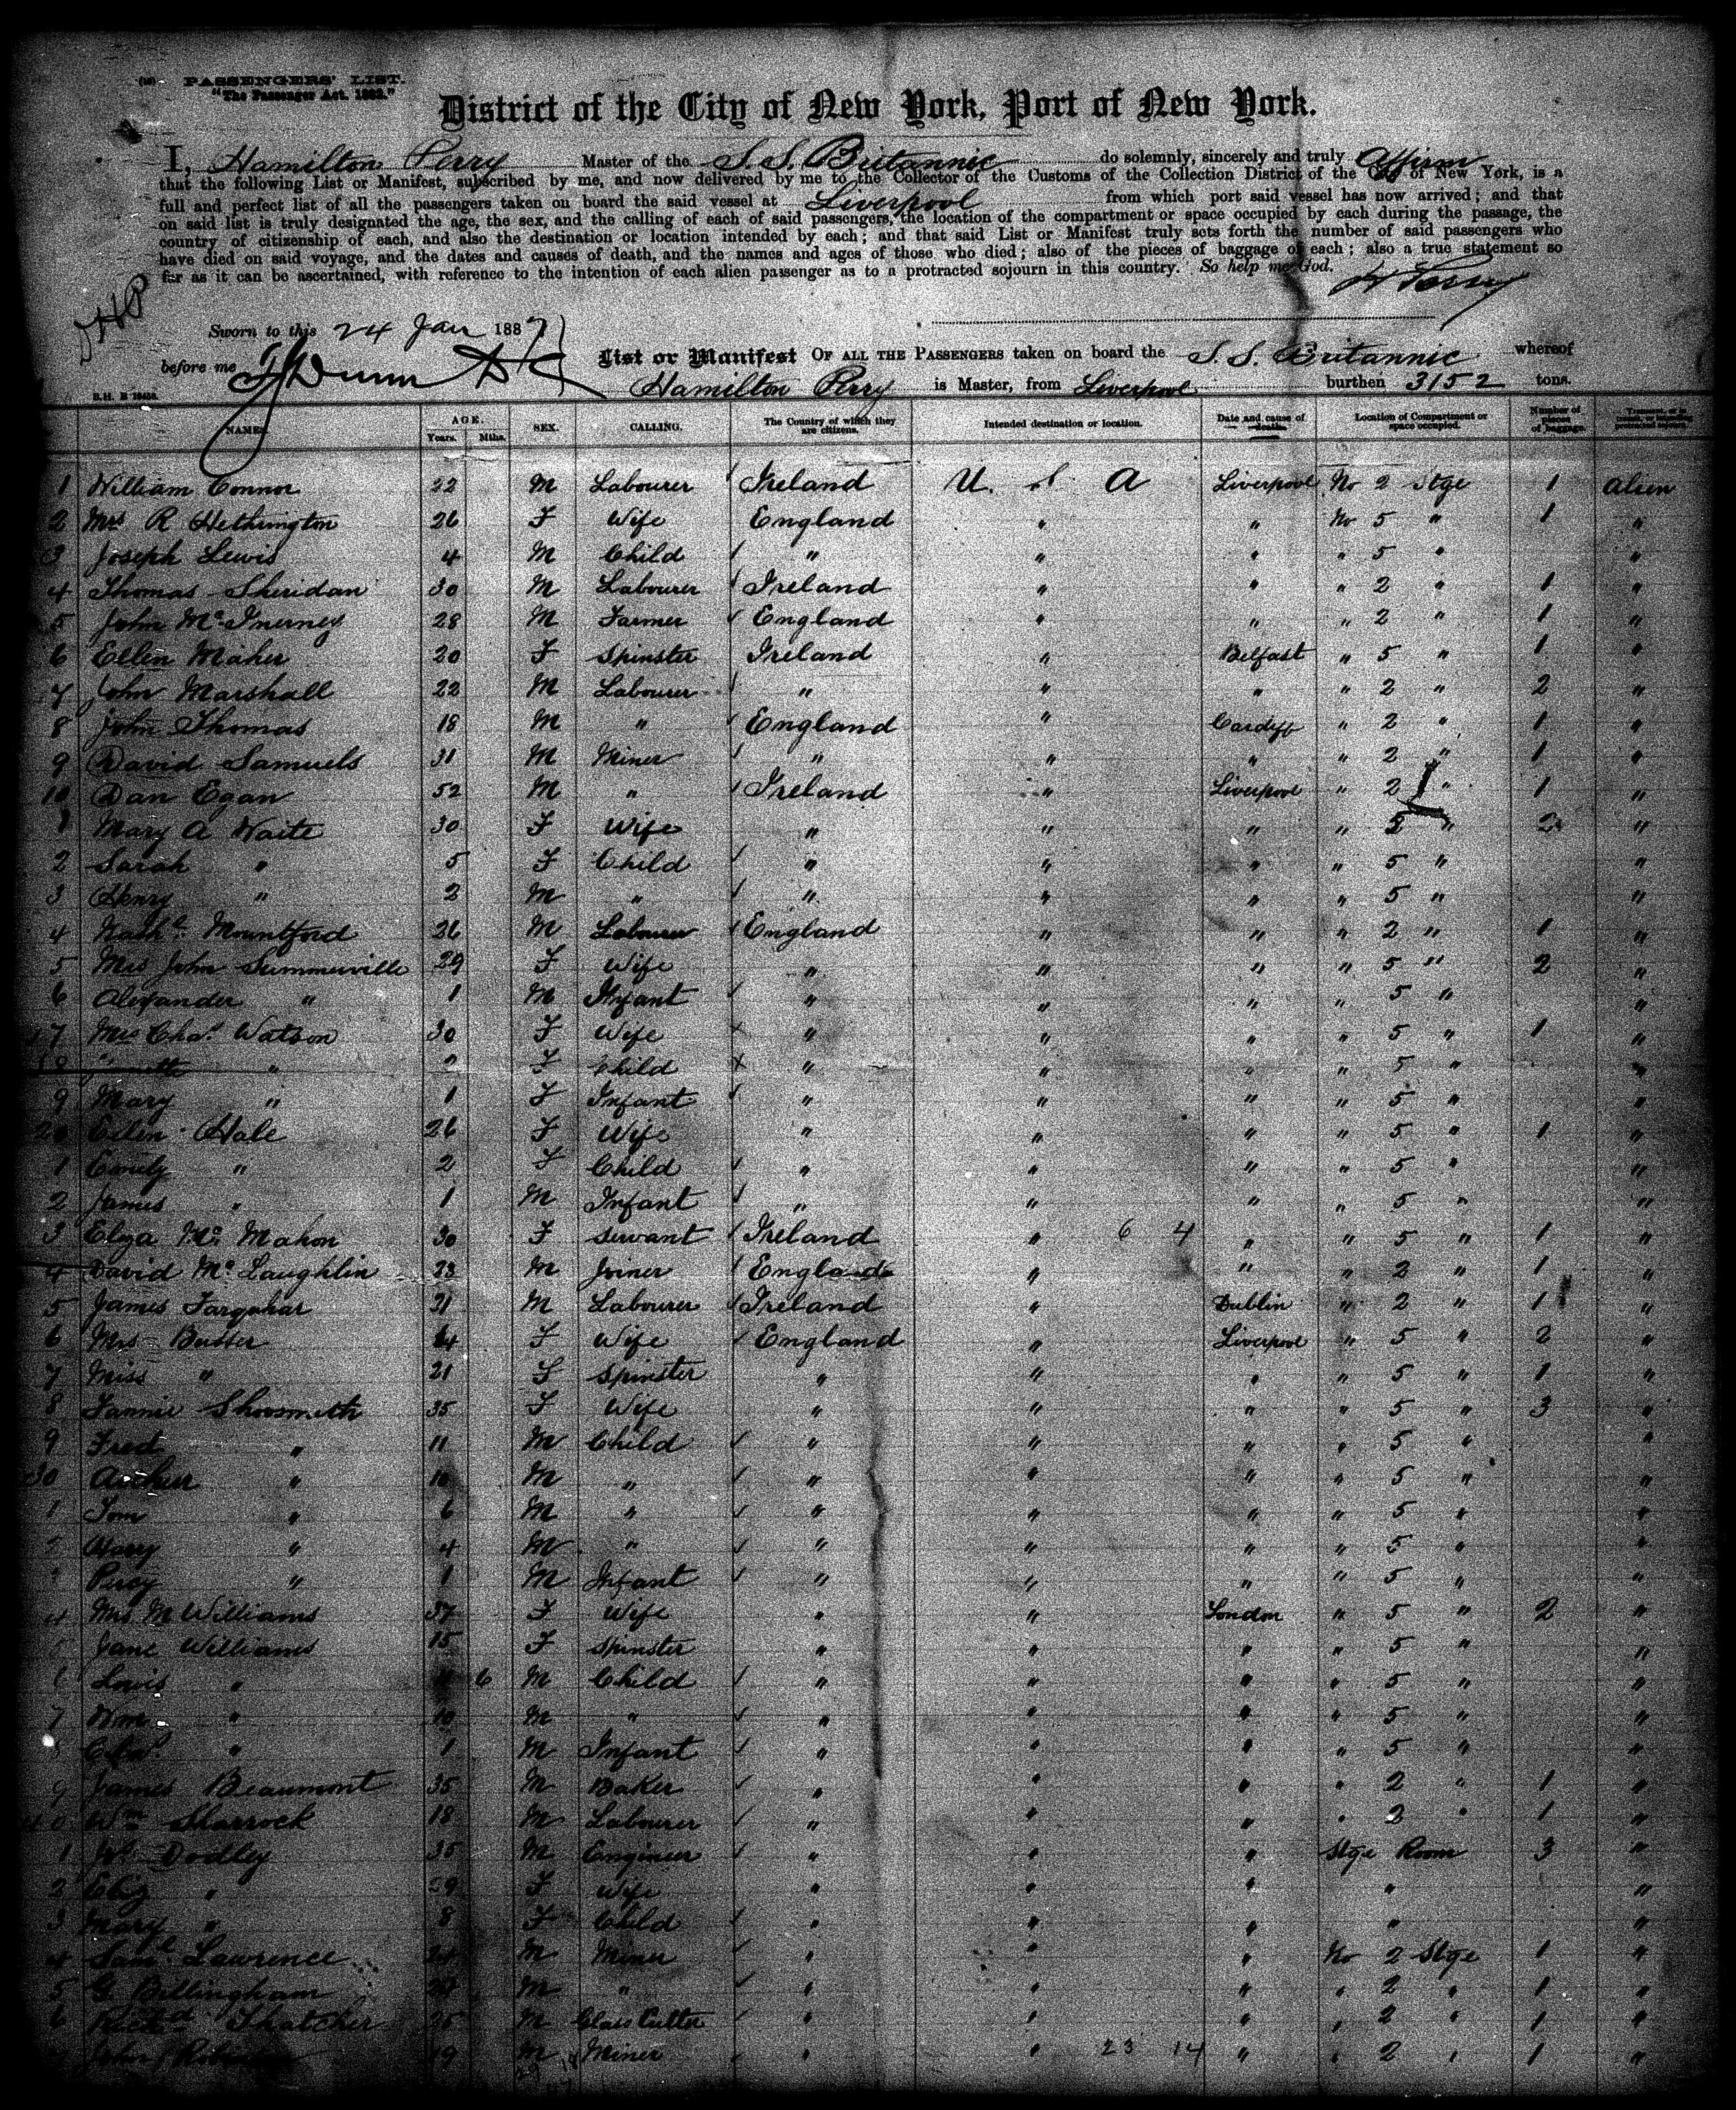 PASSENGERS' LIST.
"The Passenger Act, 1882."
District of the City of New York, Port of New York.
I, Hamilton Perry Master of the S.S. Britannic do solemnly, sincerely and truly Affirm
that the following List or Manifest, subscribed by me, and now delivered by me to the Collector of the Customs of the Collection District of the City of New York, is a
full and perfect list of all the passengers taken on board the said vessel at Liverpool from which port said vessel has now arrived; and that
on said list is truly designated the age, the sex, and the calling of each of said passengers, the location of the compartment or space occupied by each during the passage, the
country of citizenship of each, and also the destination or location intended by each; and that said List or Manifest truly sets forth the number of said passengers who
have died on said voyage, and the dates and causes of death, and the names and ages of those who died; also of the pieces of baggage of each; also a true statement so
far as it can be ascertained, with reference to the intention of each alien passenger as to a protracted sojourn in this country. So help me God.
H Perry
Sworn to this 24 Jan 1887
before me
List or Manifest OF ALL THE PASSENGERS taken on board the S.S. Britannic whereof
Hamilton Perry is Master, from Liverpool burthen 3152 tons.
NAMES. AGE. Years. Mths. SEX. CALLING. The Country of which they are citizens. Intended destination or location. Date and cause of death. Location of Compartment or space occupied. Number of pieces of baggage.
1 William Connor 22 M Labourer Ireland U. S. A Liverpool No 2 Stge 1 Alien
2 Mrs R Hethrington 26 F Wife England " " No 5 " 1 "
3 Joseph Lewis 4 M Child " " " " 5 " "
4 Thomas Sheridan 30 M Labourer Ireland " " " 2 " 1 "
5 John McInerney 28 M Farmer England " " " 2 " 1 "
6 Ellen Maher 20 F Spinster Ireland " Belfast " 5 " 1 "
7 John Marshall 22 M Labourer " " " " 2 " 2 "
8 John Thomas 18 M " England " Cardiff " 2 " 1 "
9 David Samuels 31 M Miner " " " " 2 " 1 "
10 Dan Egan 52 M " Ireland " Liverpool " 2 " 1 "
1 Mary A Waite 30 F Wife " " " " 5 " 2 "
2 Sarah " 5 F Child " " " " 5 " "
3 Henry " 2 M " " " " " 5 " "
4 Nathl. Mountford 26 M Labourer England " " " 2 " 1 "
5 Mrs John Summerville 29 F Wife " " " " 5 " 2 "
6 Alexander " 1 M Infant " " " " 5 " "
17 Mrs Chas. Watson 30 F Wife " " " " 5 " 1 "
18 " F Child " " " " 5 " "
9 Mary " 1 F Infant " " " " 5 " "
20 Ellen Hale 26 F Wife " " " " 5 " 1 "
1 Emily " 2 F Child " " " " 5 " "
2 James " 1 M Infant " " " " 5 " "
3 Eliza McMahon 30 F Servant Ireland " 6 4 " " 5 " 1 "
4 David McLaughlin 23 M Joiner England " " " 2 " 1 "
5 James Farquhar 31 M Labourer Ireland " Dublin " 2 " 1 "
6 Mrs Butter F Wife England " Liverpool " 5 " 2 "
7 Miss " 21 F Spinster " " " " 5 " 1 "
8 Fannie Shoosmith 35 F Wife " " " " 5 " 3 "
9 Fred " 11 M Child " " " " 5 " "
30 " 10 M " " " " " 5 " "
1 Tom " 6 M " " " " " 5 " "
2 Harry " 4 M " " " " " 5 " "
Percy " 1 M Infant " " " " 5 " "
4 Mrs M Williams 37 F Wife " " London " 5 " 2 "
5 Jane Williams 15 F Spinster " " " " 5 " "
6 Lewis " 6 M Child " " " " 5 " "
7 Wm " 10 M " " " " " 5 " "
" 1 M Infant " " " " 5 " "
9 James Beaumont 35 M Baker " " " " 2 " 1 "
40 Wm Sharrock 18 M Labourer " " " " 2 " 1 "
1 Dodley 35 M Engineer " " " Stge Room 3 "
2 Eliz " 29 F Wife " " " " "
3 Mary " 8 F Child " " " " "
4 Saml Lawrence 24 M Miner " " " No 2 Stge 1 "
5 G Billingham M " " " " " 2 " 1 "
6 Richd Thatcher M Glass Cutter " " " " 2 " 1 "
John 19 M Miner " " 23 14 " " 2 " 1 "